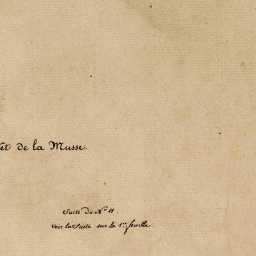 de la Musse
Suite de N.º 11.
voir la suite sur la 1.re feuille